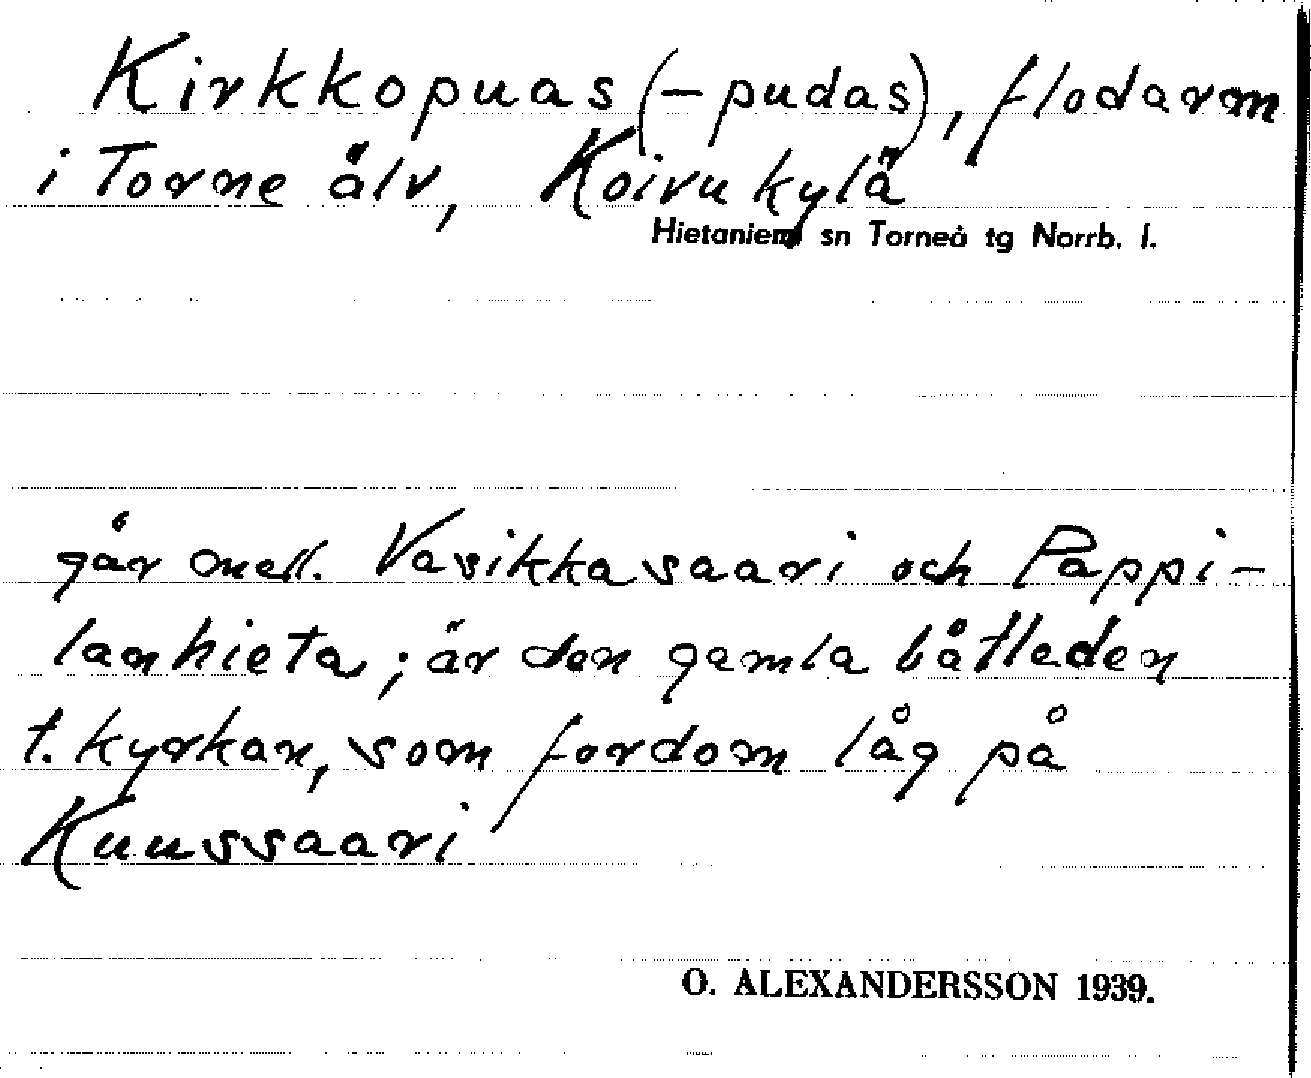 Kirkkopuas (-pudas), flodarm
i Torne älv, Koivukylä
Hietaniemi sn Torneå tg Norrb. l.
går mell. Vasikkasaari och Pappi-
lanhieta; är den gamla båtleden
t. kyrkan, som fordom låg på
Kuussaari
O. ALEXANDERSSON 1939.